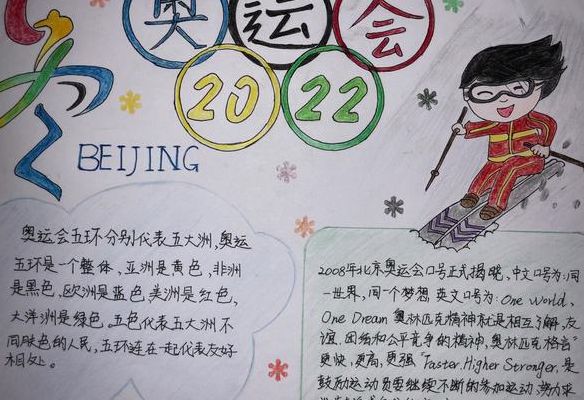 奥运会
2022
BEIJING
奥运会五环分别代表五大洲,奥运
五环是一个整体,亚洲是黄色,非洲
是黑色,欧洲是蓝色,美洲是红色,
大洋洲是绿色。五色代表五大洲不
同肤色的人民,五环连在一起代表友好
相处。
2008年北京奥运会口号正式揭晓,中文口号为:同
一世界,同一个梦想,英文口号为:One World,
One Dream 奥林匹克精神就是相互了解,友
谊,团结和公平竞争的精神,奥林匹克格言"
更快,更高,更强"Faster.Higher Stronger,是
鼓励运动员要继续不断的参加运动,努力求